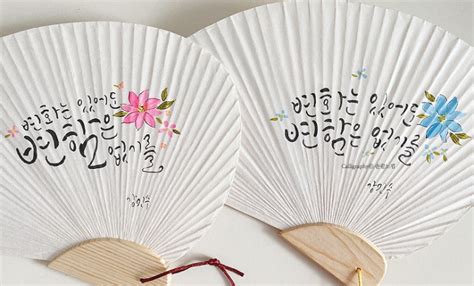 변화는 있어도
변함은 없기를
변화는 있어도
변함은 없기를